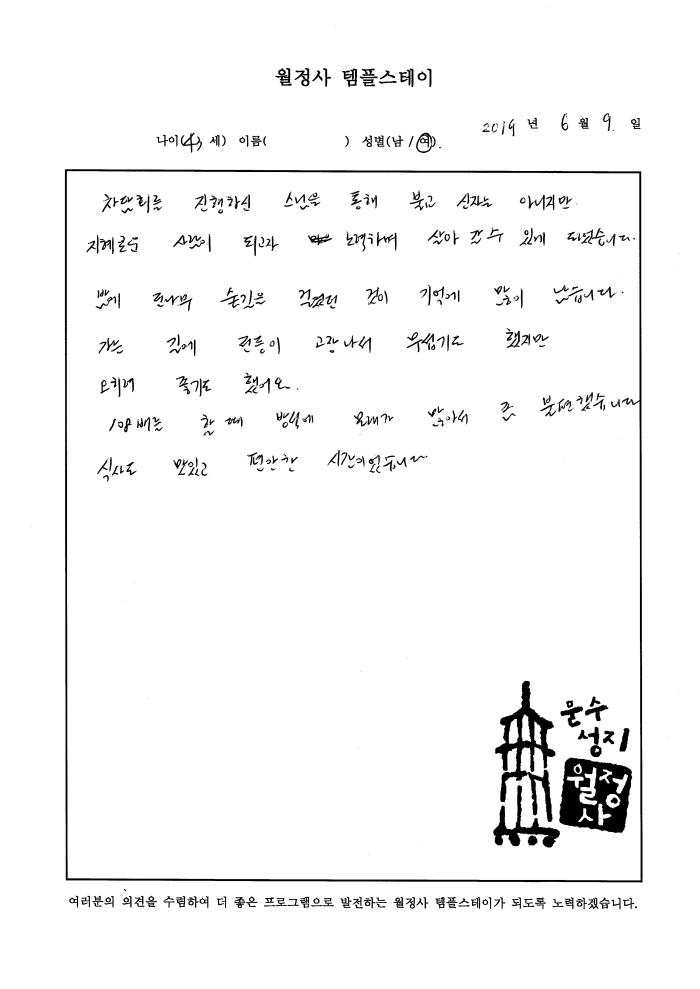 월정사 템플스테이
2019 년 6 월 9. 일
나이( 세) 이름( ) 성별(남 / 여).
차담회를 진행하신 스님을 통해 불교 신자는 아니지만
지혜로운 사람이 되고자 노력하며 살아 갈 수 있게 되었습니다.
밤에 전나무 숲길을 걸었던 것이 기억에 많이 남습니다.
가는 길에 전등이 고장나서 무섭기도 했지만
오히려 좋기도 했어요.
108배를 할 때 방석에 모래가 많아서 좀 불편했습니다
식사도 맛있고 편안한 시간이었습니다
문수
성지
월정
사
여러분의 의견을 수렴하여 더 좋은 프로그램으로 발전하는 월정사 템플스테이가 되도록 노력하겠습니다.